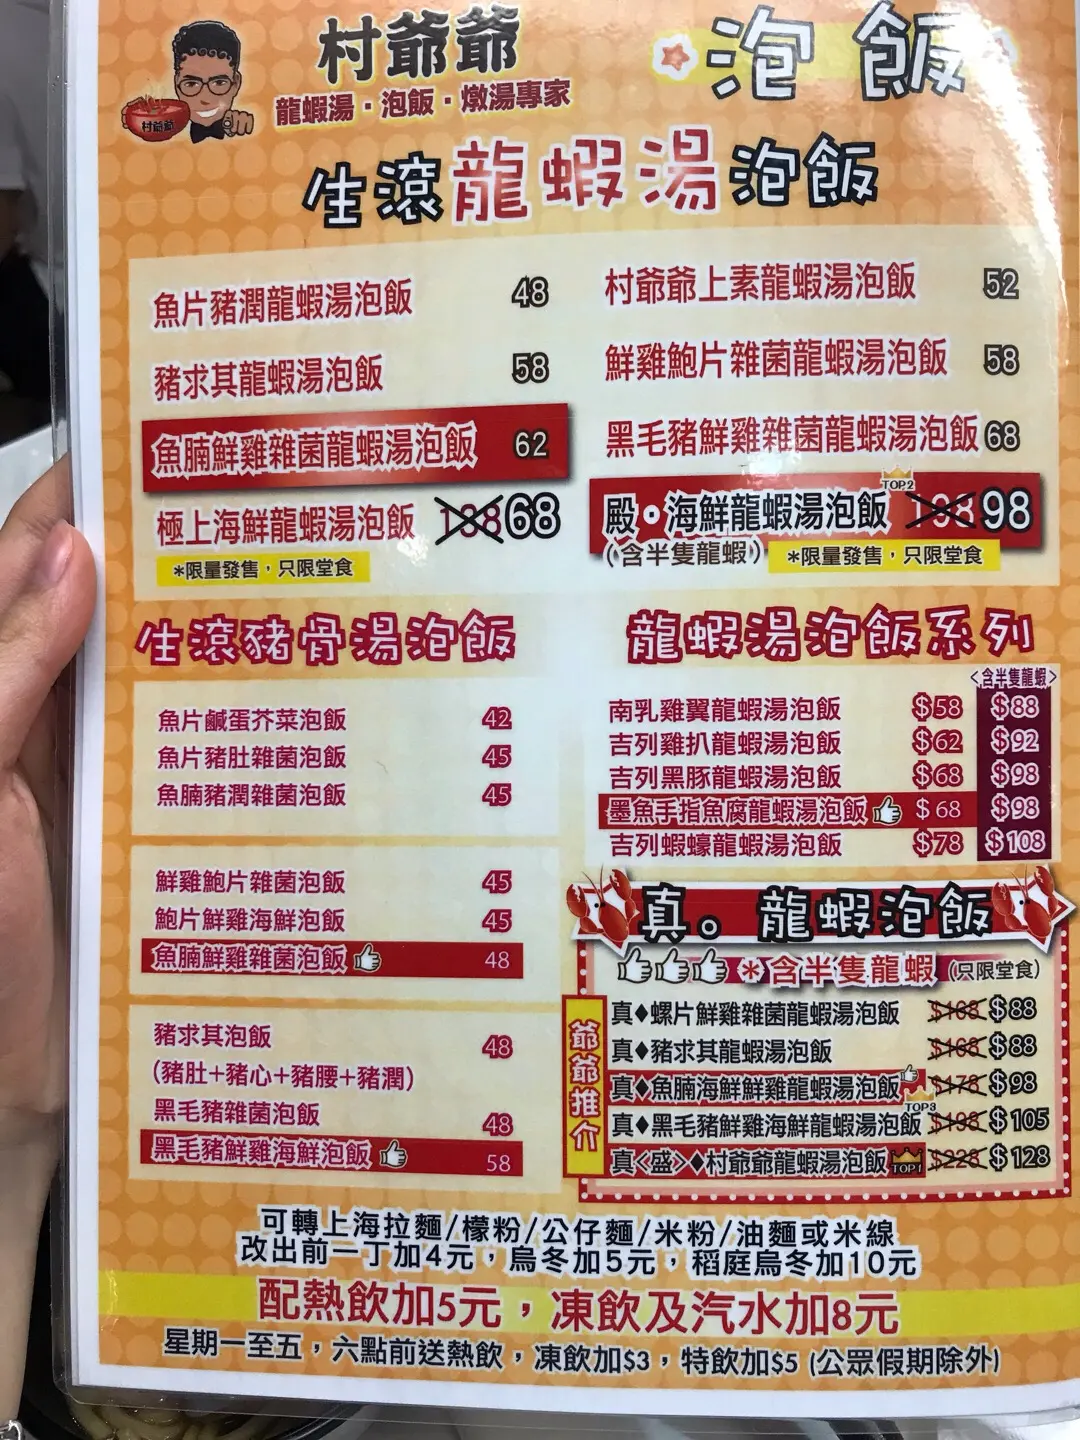 村爺爺
龍蝦湯·泡飯·燉湯專家
村爺爺
泡飯
生滾龍蝦湯泡飯
魚片豬潤龍蝦湯泡飯 48
豬求其龍蝦湯泡飯 58
魚腩鮮雞雜菌龍蝦湯泡飯 62
極上海鮮龍蝦湯泡飯 138 68
*限量發售，只限堂食
村爺爺上素龍蝦湯泡飯 52
鮮雞鮑片雜菌龍蝦湯泡飯 58
黑毛豬鮮雞雜菌龍蝦湯泡飯 68
TOP2
殿·海鮮龍蝦湯泡飯 198 98
(含半隻龍蝦) *限量發售，只限堂食
生滾豬骨湯泡飯
魚片鹹蛋芥菜泡飯 42
魚片豬肚雜菌泡飯 45
魚腩豬潤雜菌泡飯 45
鮮雞鮑片雜菌泡飯 45
鮑片鮮雞海鮮泡飯 45
魚腩鮮雞雜菌泡飯 48
豬求其泡飯 48
(豬肚+豬心+豬腰+豬潤)
黑毛豬雜菌泡飯 48
黑毛豬鮮雞海鮮泡飯 58
龍蝦湯泡飯系列
<含半隻龍蝦>
南乳雞翼龍蝦湯泡飯 $58 $88
吉列雞扒龍蝦湯泡飯 $62 $92
吉列黑豚龍蝦湯泡飯 $68 $98
墨魚手指魚腐龍蝦湯泡飯 $68 $98
吉列蝦蠔龍蝦湯泡飯 $78 $108
真。龍蝦泡飯
*含半隻龍蝦 (只限堂食)
爺爺推介
真♦螺片鮮雞雜菌龍蝦湯泡飯 $168 $88
真♦豬求其龍蝦湯泡飯 $168 $88
真♦魚腩海鮮鮮雞龍蝦湯泡飯 $178 $98
TOP3
真♦黑毛豬鮮雞海鮮龍蝦湯泡飯 $198 $105
真<盛>♦村爺爺龍蝦湯泡飯 TOP1 $228 $128
可轉上海拉麵/檬粉/公仔麵/米粉/油麵或米線
改出前一丁加4元，烏冬加5元，稻庭烏冬加10元
配熱飲加5元，凍飲及汽水加8元
星期一至五，六點前送熱飲，凍飲加$3，特飲加$5 (公眾假期除外)